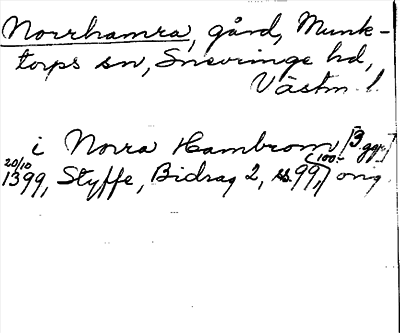 Norrhamra, gård, Munk-
torps sn, Snevringe hd,
Västm. l.
i Norra Hambrom [3 ggr]
20/10 1399, Styffe, Bidrag 2, s. 99, (100-) orig